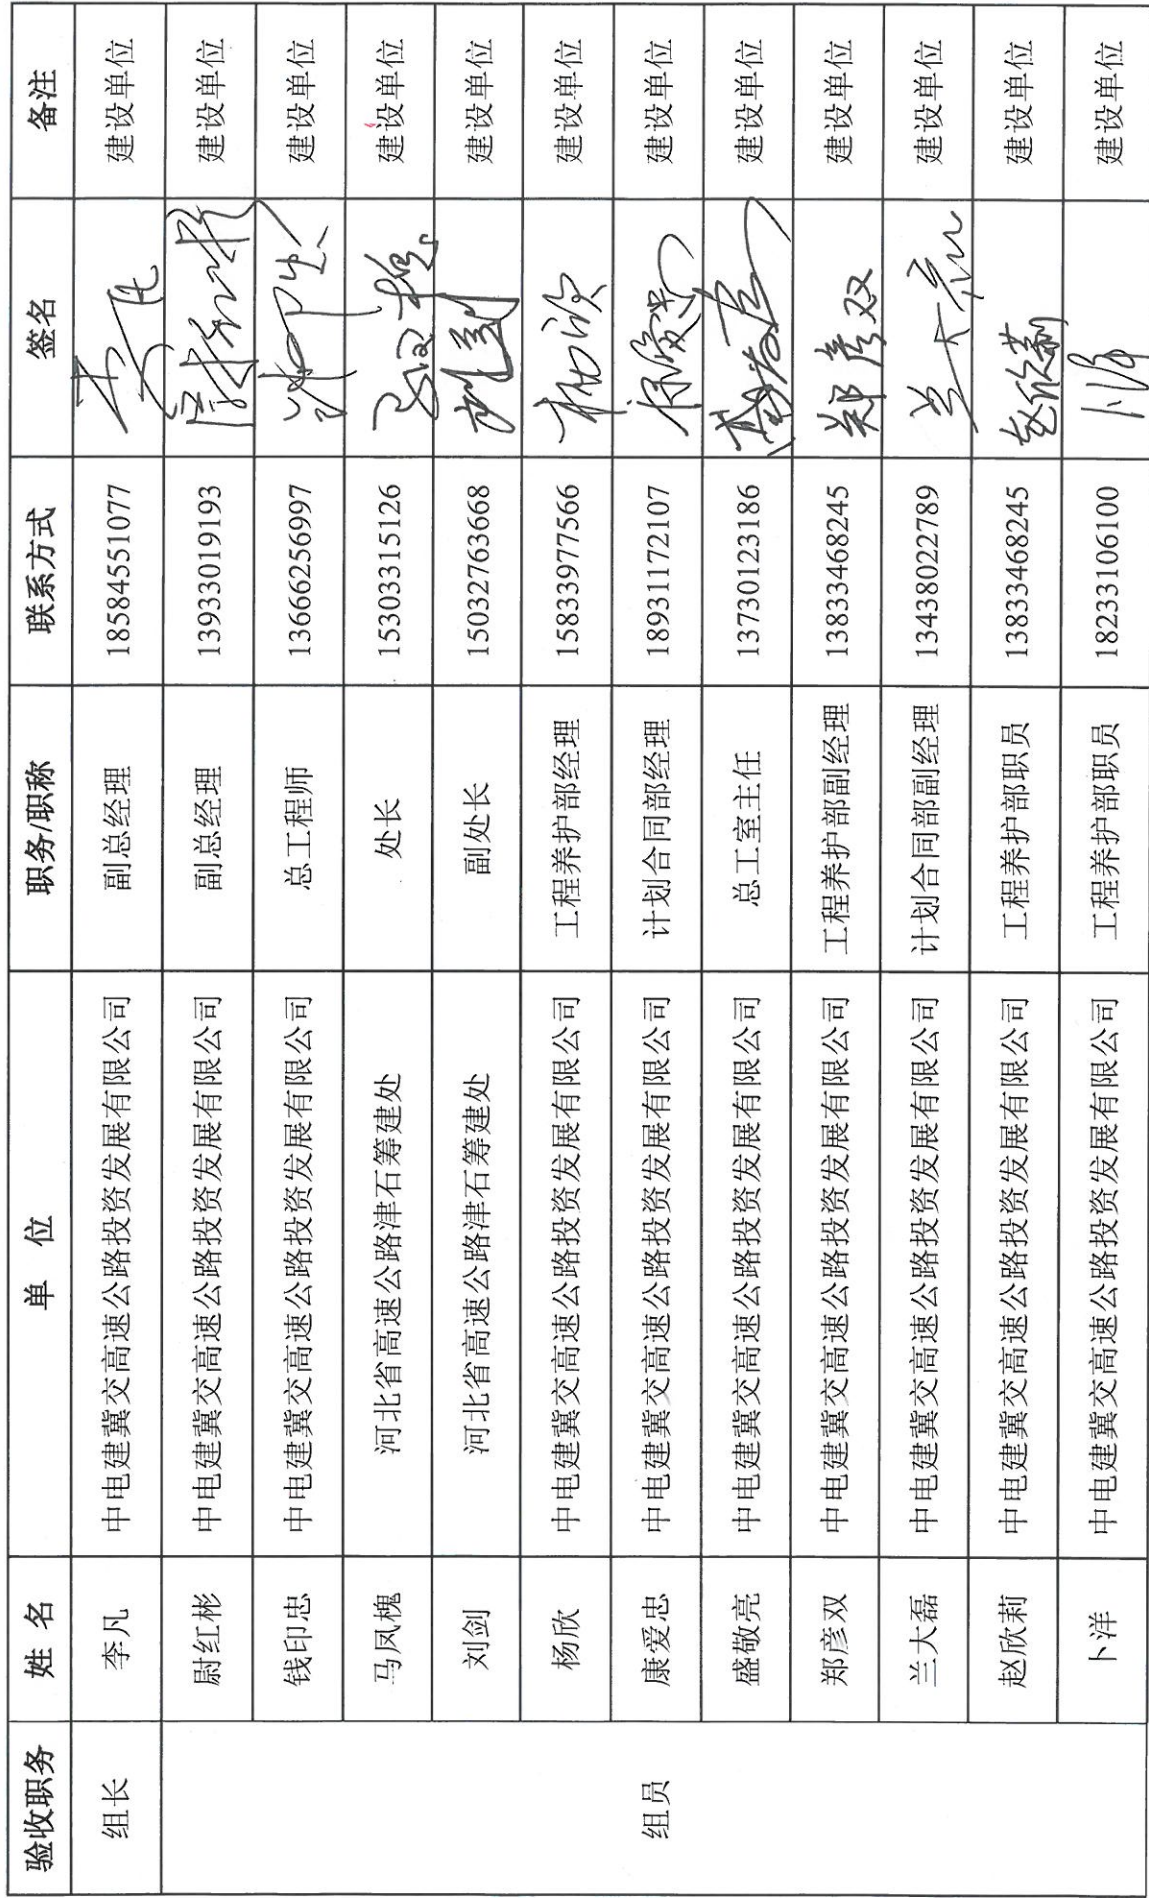 验收职务 姓 名 单 位 职务/职称 联系方式 签名 备注
组长 李凡 中电建冀交高速公路投资发展有限公司 副总经理 18584551077 李凡 建设单位
组员 尉红彬 中电建冀交高速公路投资发展有限公司 副总经理 13933019193 尉红彬 建设单位
钱印忠 中电建冀交高速公路投资发展有限公司 总工程师 13666256997 建设单位
马凤槐 河北省高速公路津石筹建处 处长 15303315126 建设单位
刘剑 河北省高速公路津石筹建处 副处长 15032763668 建设单位
杨欣 中电建冀交高速公路投资发展有限公司 工程养护部经理 15833977566 杨欣 建设单位
康爱忠 中电建冀交高速公路投资发展有限公司 计划合同部经理 18931172107 建设单位
盛敬亮 中电建冀交高速公路投资发展有限公司 总工室主任 13730123186 建设单位
郑彦双 中电建冀交高速公路投资发展有限公司 工程养护部副经理 13833468245 郑彦双 建设单位
兰大磊 中电建冀交高速公路投资发展有限公司 计划合同部副经理 13438022789 建设单位
赵欣莉 中电建冀交高速公路投资发展有限公司 工程养护部职员 13833468245 赵欣莉 建设单位
卜洋 中电建冀交高速公路投资发展有限公司 工程养护部职员 18233106100 卜洋 建设单位